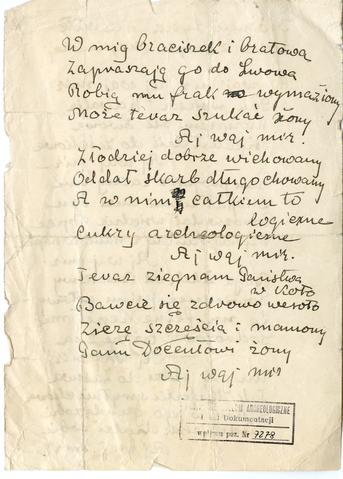 W mig braciszek i bratowa
Zapraszają go do Lwowa
Robią mu frak wymażiony
Może teraz szukać żony
Aj waj mir.
Złodziej dobrze wichowany
Oddał skarb długo chowany
A w nim całkiem to
logiczne
Cukry archeologiczne
Aj waj mir.
Teraz ziegnam Państwa
w koło
Bawcie się zdrowo wesoło
Zicze szczęścia i mamony
Panu Docentowi żony
Aj waj mir
ARCHEOLOGICZNE
Dokumentacji
wpływu poz. Nr 7278